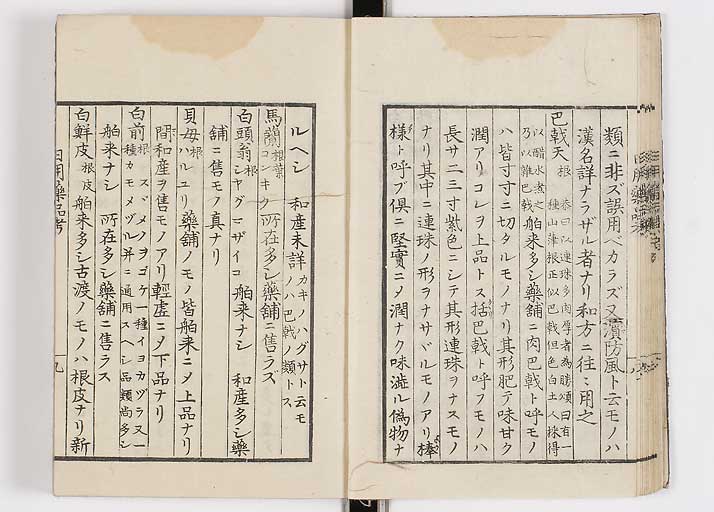 類ニ非ズ誤用ベカラズ又濱防風ト云モノハ
漢名詳ナラザル者ナリ和方ニ往〻用之
巴戟天 根 恭曰以連珠多肉厚者為勝頌曰有一
種山葎根正似巴戟但色白土人採得
以醋水煮之
乃以雜巴戟 舶來多シ藥舗ニ肉巴戟ト呼モノ
ハ皆寸寸ニ切タルモノナリ其形肥テ味甘ク
潤アリコレヲ上品トス括巴戟ト呼フモノハ
長サ二三寸紫色ニシテ其形連珠ヲナスモノ
ナリ其中ニ連珠ノ形ヲナサヾルモノアリ棒
様ト呼ブ俱ニ堅實ニメ潤ナク味澁ル偽物ナ
ルヘシ 和産未詳 カキノハグサト云モ
ノハ巴戟ノ類トス
馬藺 根葉
コンキク 所在多シ藥舗ニ售ラズ
白頭翁 根
シヤグマザイコ 舶来ナシ 和産多シ藥
舗ニ售モノ真ナリ
貝母 根
ハルユリ 藥舗ノモノ皆舶来ニメ上品ナリ
間和産ヲ售モノアリ輕虚ニメ下品ナリ
白前 根 スヾメノヲゴケ 一種イヨカヅラ又一
種カモメヅル并ニ通用スヘシ品類尚多シ
舶来ナシ 所在多シ藥舗ニ售ラズ
白鮮皮 根皮 舶来多シ古渡ノモノハ根皮ナリ新
日用藥品考
九